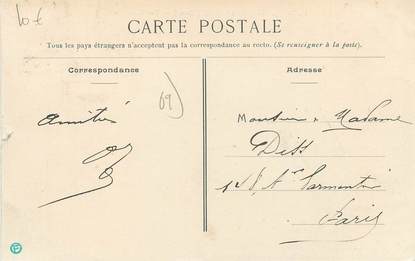 10 €
CARTE POSTALE
Tous les pays étrangers n'acceptent pas la correspondance au recto. (Se renseigner à la poste).
Correspondance
Adresse
69
Amitiés
Monsieur & Madame
Diss
148 Av. Parmentier
Paris